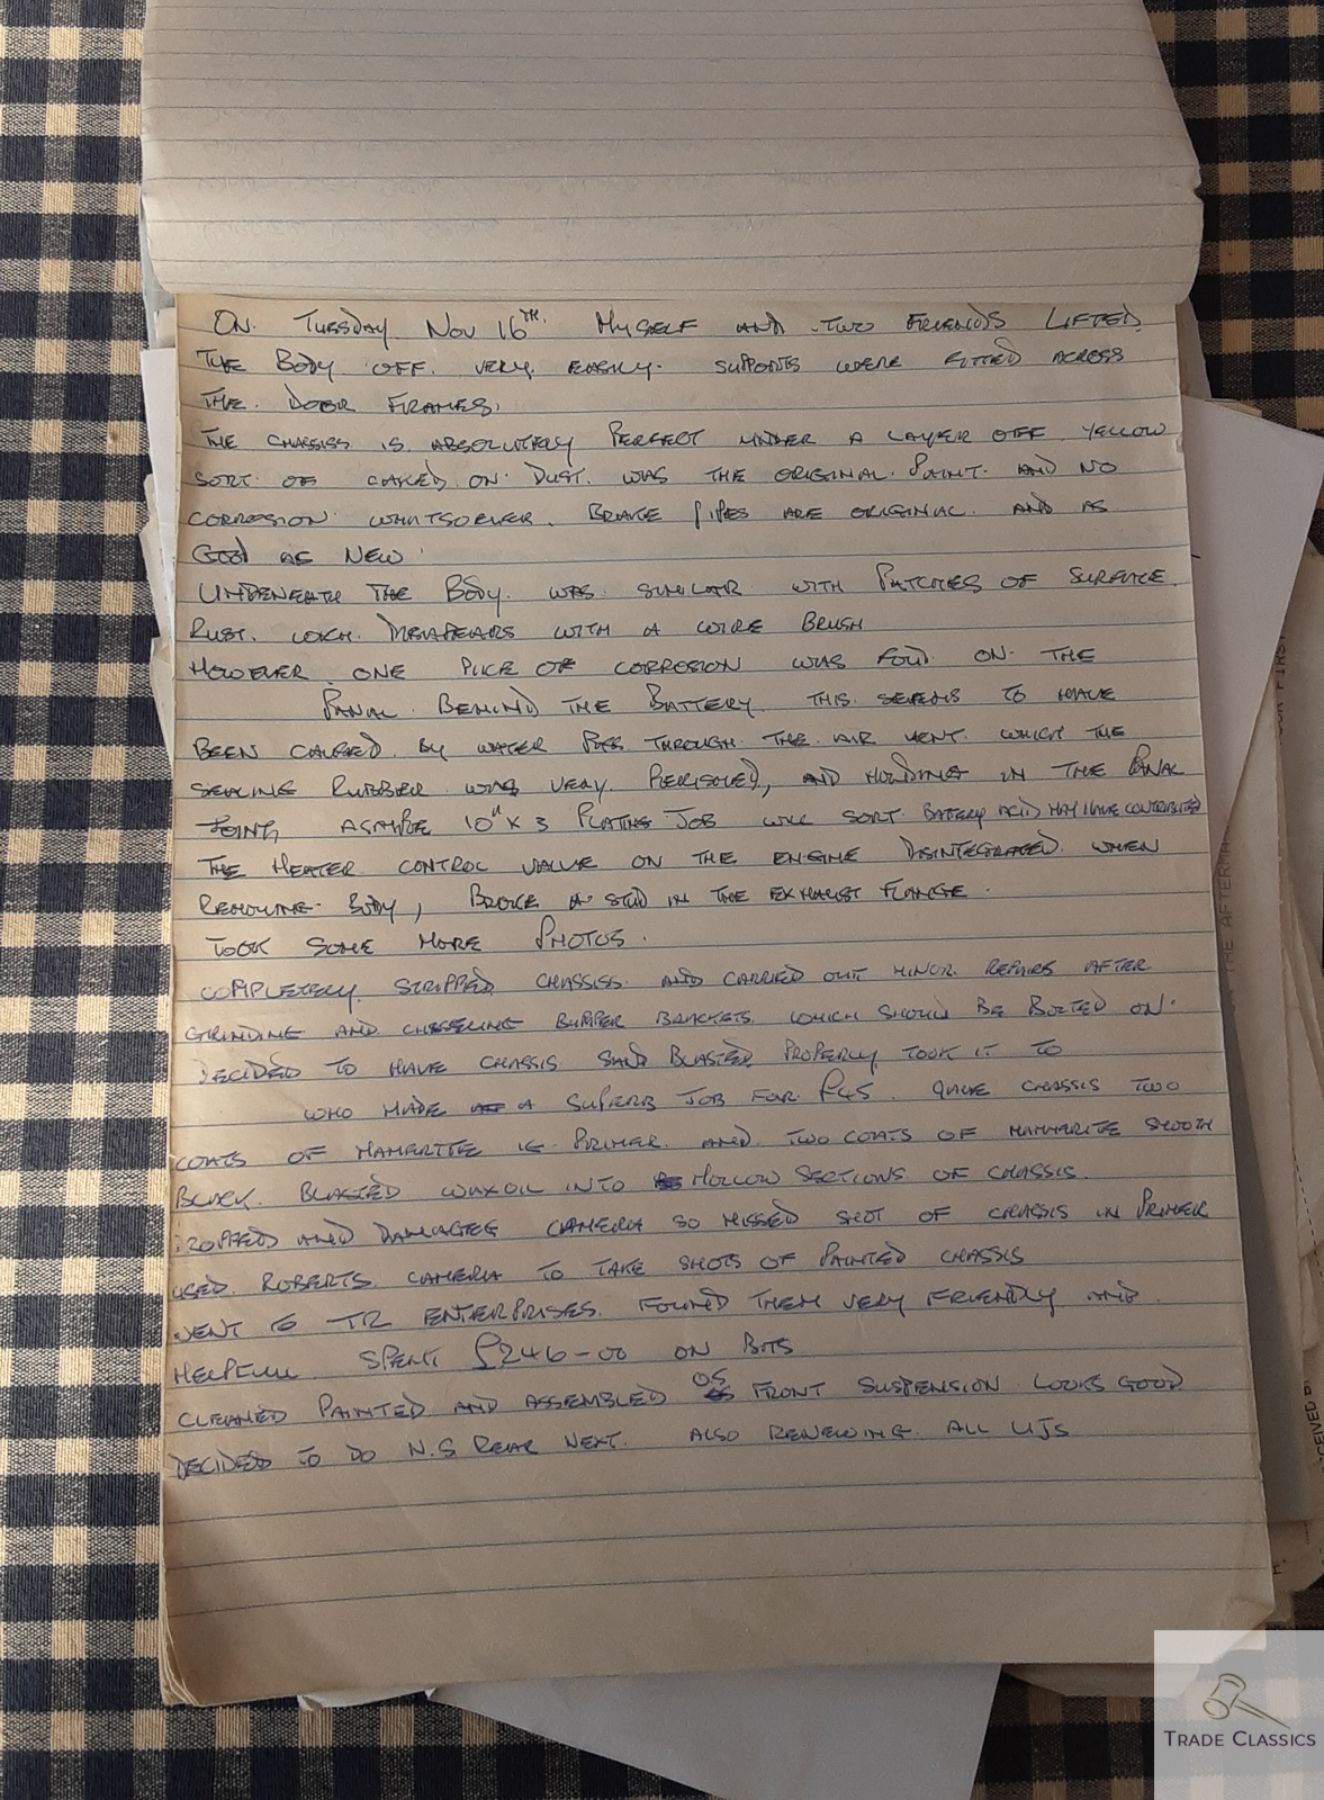 ON. TUESDAY NOV 16TH. MYSELF AND TWO FRIENDS LIFTED
THE BODY OFF. VERY. EASILY. SUPPORTS WERE FITTED ACROSS
THE. DOOR FRAMES.
THE CHASSISS IS ABSOLUTELY PERFECT UNDER A LAYER OFF YELLOW
SORT OF CAKED ON DUST. WAS THE ORIGINAL. PAINT. AND NO
CORROSION WHATSOEVER. BRAKE PIPES ARE ORIGINAL. AND AS
GOOD AS NEW
UNDENEATH THE BODY. WAS SIMILAR WITH PATCHES OF SURFACE
RUST. WICH. DISAPEARS WITH A WIRE BRUSH
HOWEVER ONE PLICE OF CORROSION WAS FOUD ON THE
PANAL BEHIND THE BATTERY THIS SEEMS TO HAVE
BEEN CAUSED BY WATER THROUGH THE AIR VENT. WHICH THE
SEALING RUBBER WAS VERY PERISHED, AND HOLDING IN THE PANAL
JOINT, 10" X 3 PLATING JOB WILL SORT BATTERY ACID MAY HAVE CONTRIBUTED
THE HEATER CONTROL VALVE ON THE ENGINE DISINTEGRATED WHEN
REMOVING BODY, BROKE A STUD IN THE EXHAUST FLANGE.
TOOK SOME MORE PHOTOS.
COMPLETELY STRIPPED CHASSISS AND CARRIED OUT MINOR REPAIRS AFTER
GRINDING AND BUMPER BRACKETS WHICH SHOULD BE BOLTED ON
DECIDED TO HAVE CHASSIS SAND BLASTED PROPERLY TOOK IT TO
WHO MADE A SUPERB JOB FOR £45. GAVE CHASSIS TWO
COATS OF PRIMER. AND TWO COATS OF HAMMERITE SMOOTH
BLACK. BLASTED WAXOIL INTO HOLLOW SECTIONS OF CHASSIS.
DROPPED AND DAMAGEG CAMERA SO MISSED SHOT OF CHASSIS IN PRIMER
USED ROBERTS CAMERA TO TAKE SHOTS OF PAINTED CHASSIS
WENT TO TR ENTERPRISES. FOUND THEM VERY FRIENDLY AND
HELPFULL SPENT £246-00 ON BITS
CLEANED PAINTED AND ASSEMBLED OS FRONT SUSPENSION LOOKS GOOD
DECIDED TO DO N.S REAR NEXT. ALSO RENEWING ALL UJS
TRADE CLASSICS